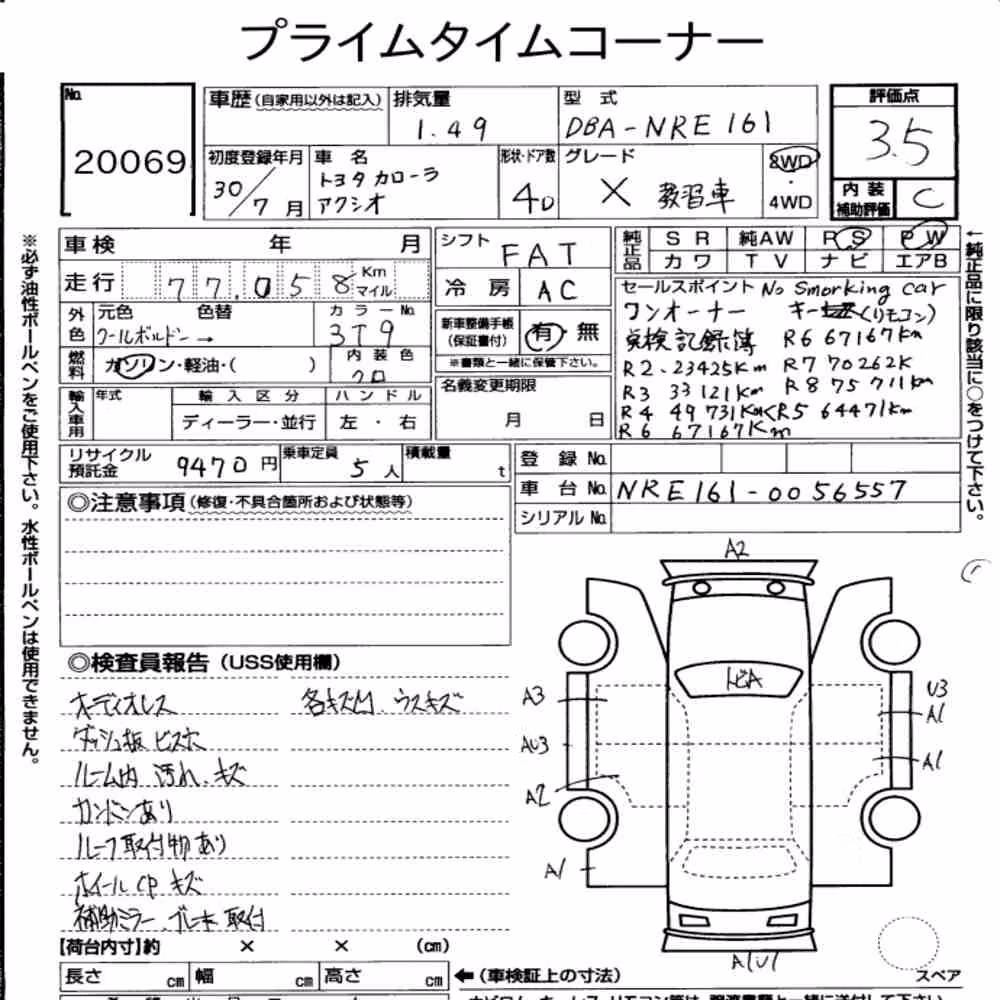 プライムタイムコーナー
No.
20069
車歴(自家用以外は記入)
排気量
1.49
型 式
DBA-NRE161
評価点
3.5
内装
補助評価
C
初度登録年月
30/7月
車 名
トヨタ カローラ
アクシオ
形状・ドア数
4D
グレード
X 教習車
2WD
・
4WD
車検 年 月
走行 77,058 Km
マイル
シフト
FAT
冷房 AC
純正品
SR 純AW PS PW
カワ TV ナビ エアB
外色
元色 色替
クールボルドー→
カラーNo.
3T9
燃料
ガソリン・軽油・( )
内装色
クロ
新車整備手帳
(保証書付)
有・無
※書類と一緒に保管下さい。
名義変更期限
月 日
セールスポイント No Smorking car
ワンオーナー キー (リモコン)
点検記録簿 R6 67167Km
R2.23425Km R7 70262K
R3 33121Km R8 75711km
R4 49731Km R5 64471km
R6 67167Km
輸入車用
年式
輸入区分
ハンドル
ディーラー・並行
左・右
リサイクル
預託金
9470円
乗車定員
5人
積載量
t
登録No.
車台No. NRE161-0056557
シリアルNo.
◎注意事項(修復・不具合箇所および状態等)
◎検査員報告(USS使用欄)
オーディオレス 各キズ凹、ウスキズ
ダッシュ板 ビス穴
ルーム内 汚れ、キズ
カンバンあり
ルーフ取付物あり
ホイールCP キズ
補助ミラー、ブレーキ取付
A2
トビA
A3
AU3
A2
A1
U3
A1
A1
A1U1
スペア
【荷台内寸】約 × × (cm)
長さ cm 幅 cm 高さ cm
←(車検証上の寸法)
※必ず油性ボールペンをご使用下さい。水性ボールペンは使用できません。
←純正品に限り該当に○をつけて下さい。